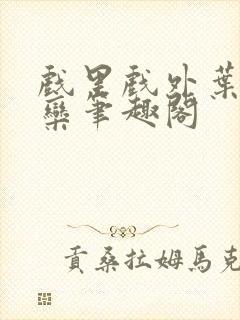 戲里戲外葉
欒筆趣閣
貢桑拉姆馬克